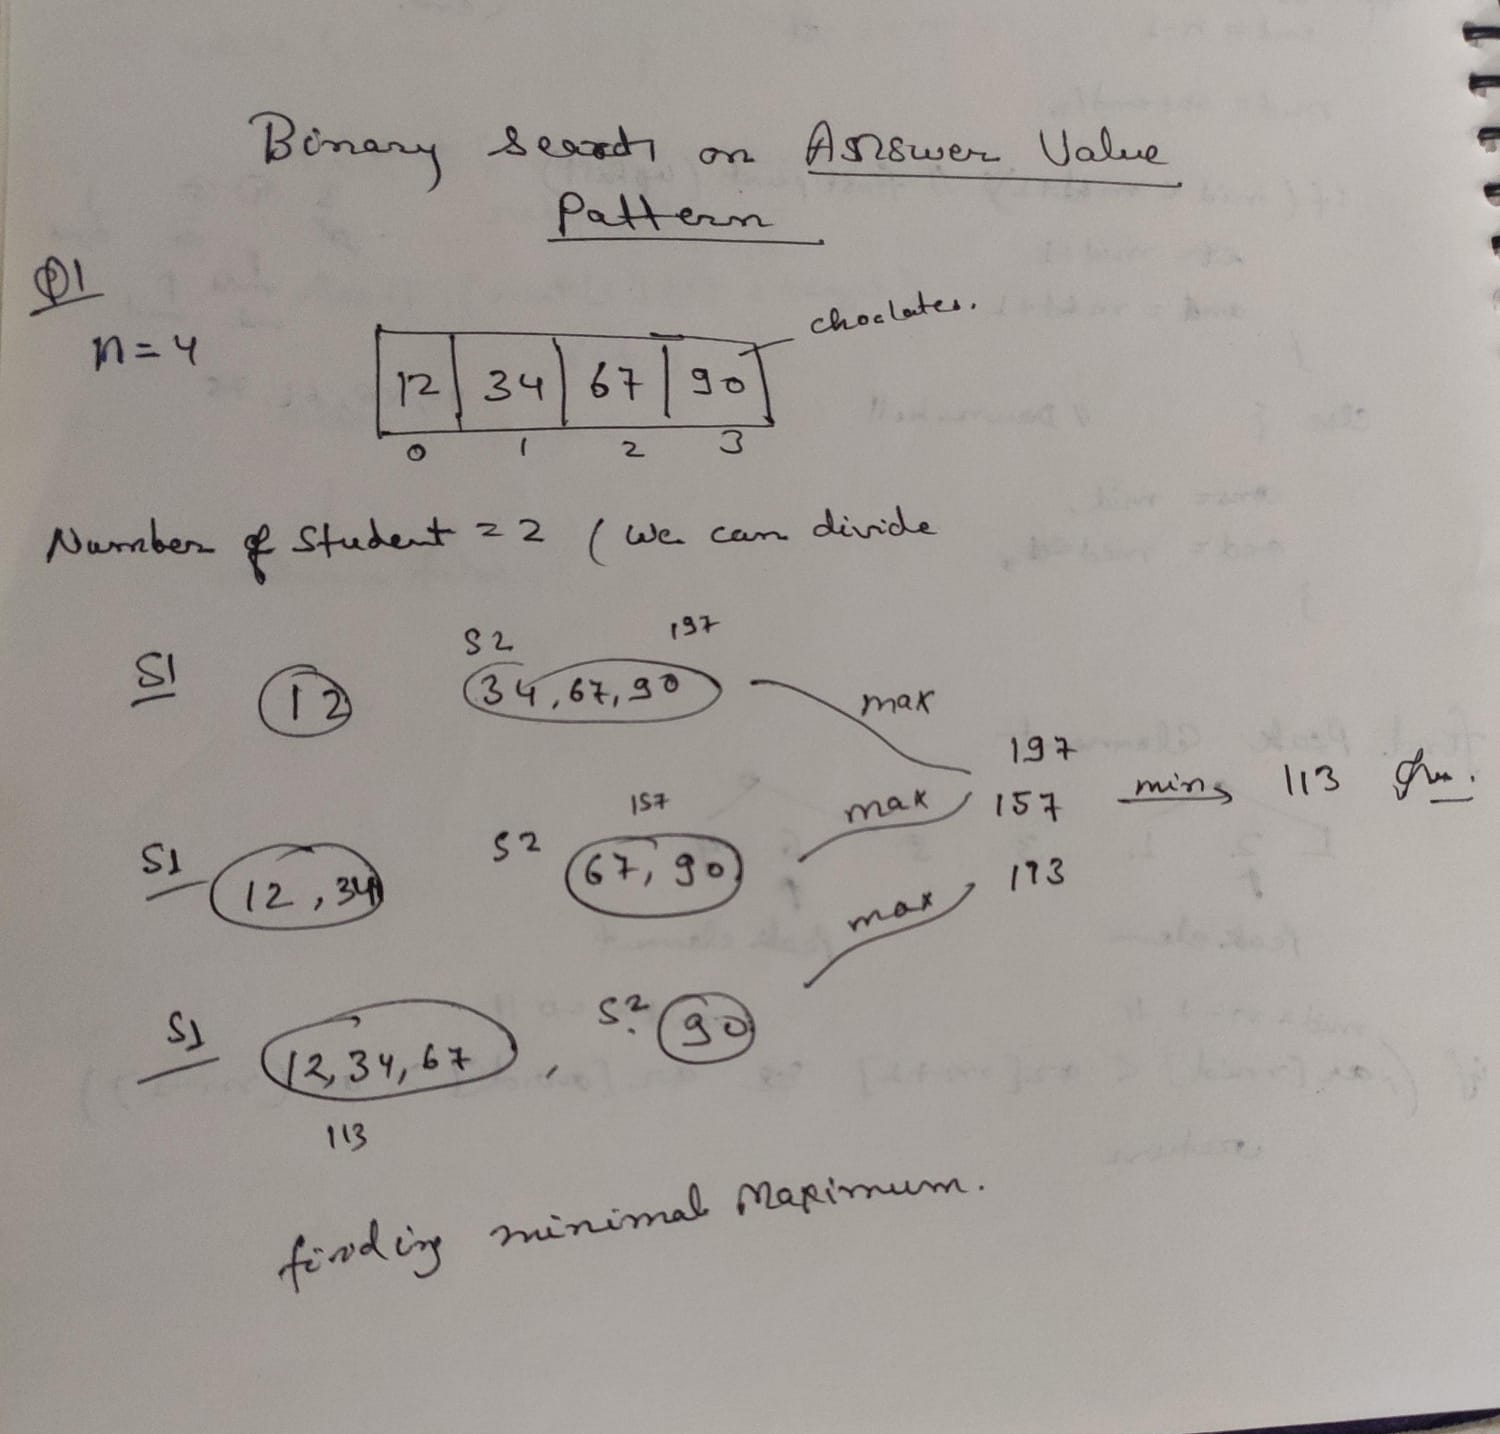 Binary Search on Answer Value
Pattern
Q1
n=4
12 34 67 90
choclates.
0 1 2 3
Number of Student = 2 ( We can divide
S1 12 S2 34, 67, 90 197
max
S1 12, 34 S2 67, 90 157
max
S1 12, 34, 67 S2 90
113
max
197
157
113
min 113
finding minimal Maximum.